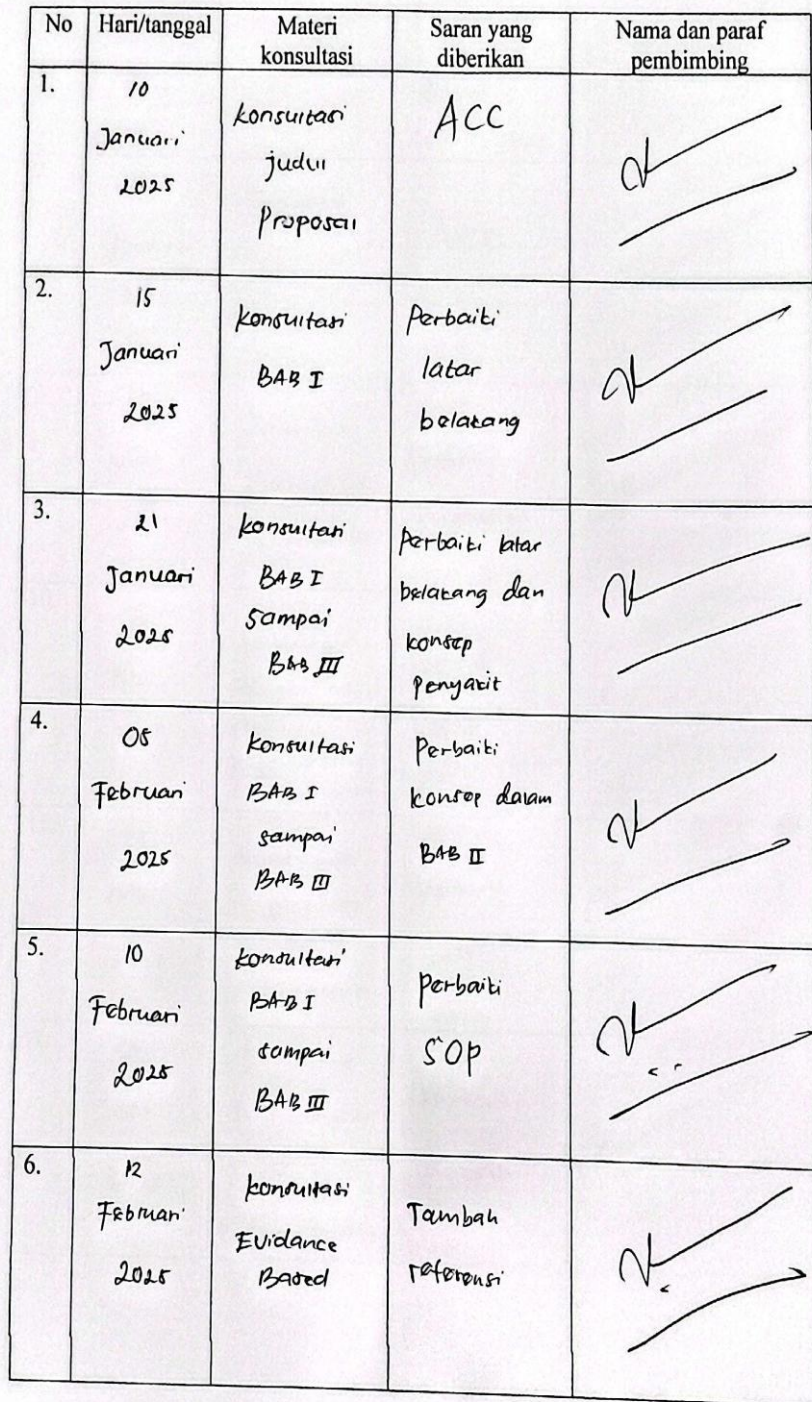 No Hari/tanggal Materi konsultasi Saran yang diberikan Nama dan paraf pembimbing
1.
10
Januari
2025
Konsultasi
judul
Proposal
ACC
2.
15
Januari
2025
Konsultasi
BAB I
Perbaiki
latar
belakang
3.
21
Januari
2025
Konsultasi
BAB I
Sampai
BAB III
Perbaiki latar
belakang dan
konsep
penyakit
4.
05
Februari
2025
Konsultasi
BAB I
sampai
BAB III
Perbaiki
konsep dalam
BAB II
5.
10
Februari
2025
Konsultasi
BAB I
sampai
BAB III
Perbaiki
SOP
6.
12
Februari
2025
Konsultasi
Evidance
Based
Tambah
referensi